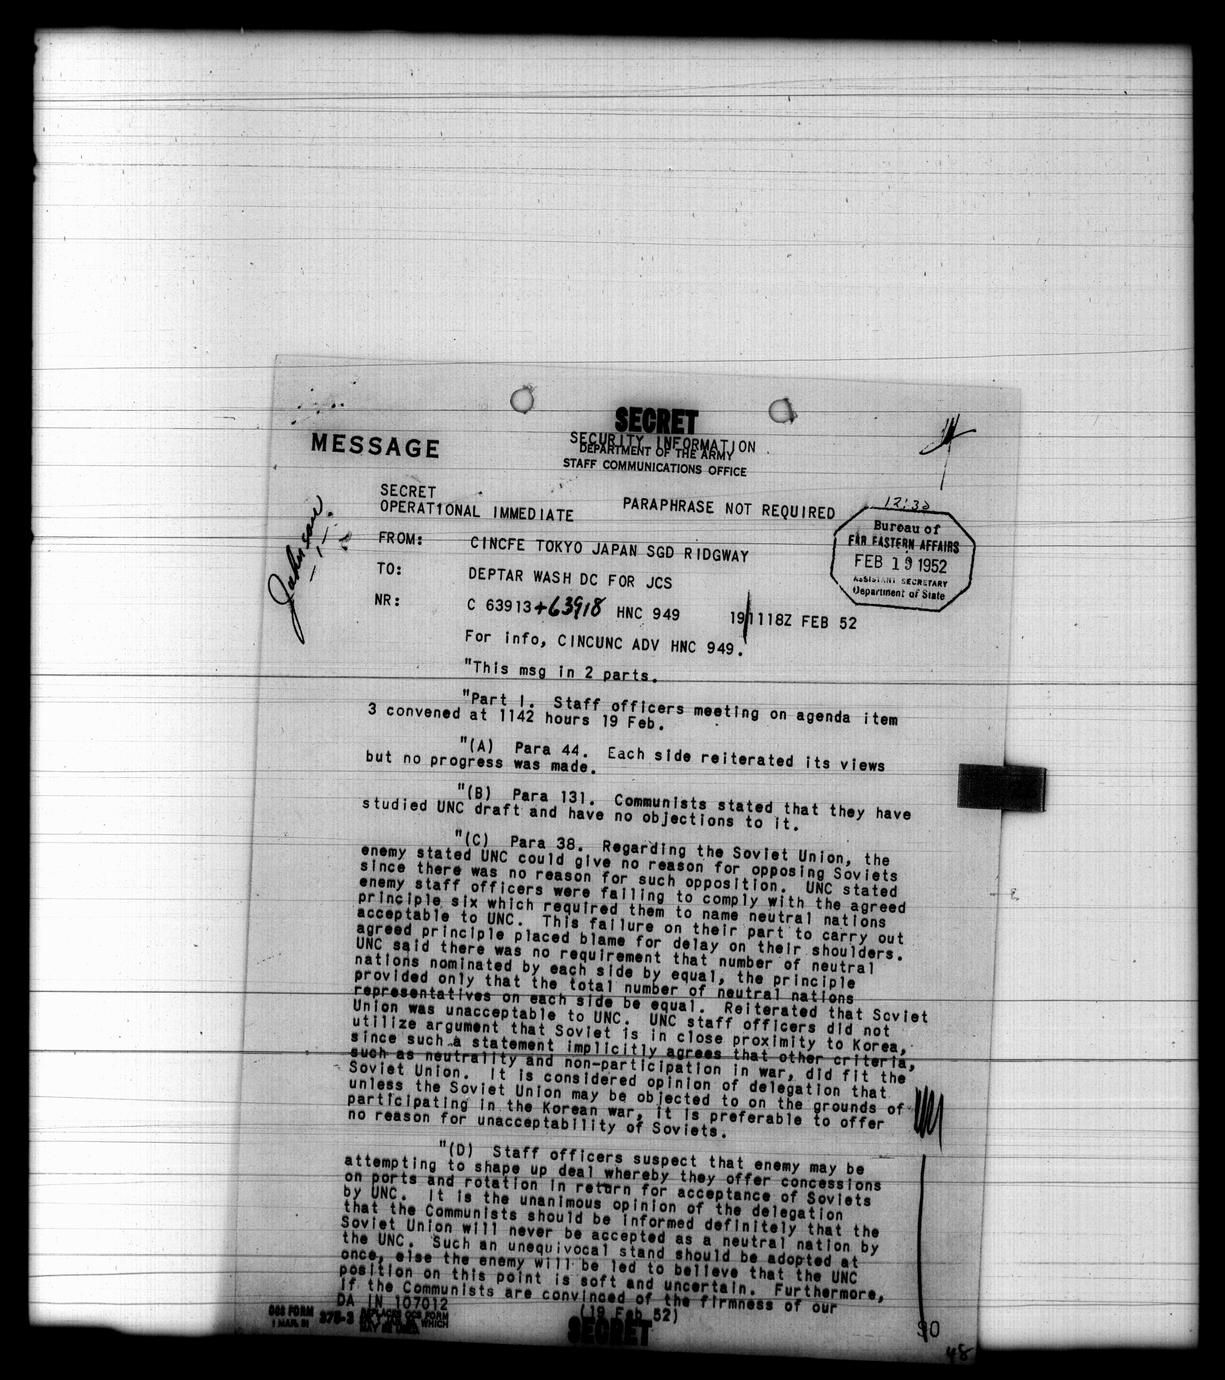 SECRET
SECURITY INFORMATION
DEPARTMENT OF THE ARMY
STAFF COMMUNICATIONS OFFICE
MESSAGE
SECRET
OPERATIONAL IMMEDIATE
PARAPHRASE NOT REQUIRED
12:32
Bureau of
FAR EASTERN AFFAIRS
FEB 19 1952
ASSISTANT SECRETARY
Department of State
Johnson
FROM: CINCFE TOKYO JAPAN SGD RIDGWAY
TO: DEPTAR WASH DC FOR JCS
NR: C 63913+63918 HNC 949 191118Z FEB 52
For info, CINCUNC ADV HNC 949.
"This msg in 2 parts.
"Part I. Staff officers meeting on agenda item
3 convened at 1142 hours 19 Feb.
"(A) Para 44. Each side reiterated its views
but no progress was made.
"(B) Para 131. Communists stated that they have
studied UNC draft and have no objections to it.
"(C) Para 38. Regarding the Soviet Union, the
enemy stated UNC could give no reason for opposing Soviets
since there was no reason for such opposition. UNC stated
enemy staff officers were failing to comply with the agreed
principle six which required them to name neutral nations
acceptable to UNC. This failure on their part to carry out
agreed principle placed blame for delay on their shoulders.
UNC said there was no requirement that number of neutral
nations nominated by each side by equal, the principle
provided only that the total number of neutral nations
representatives on each side be equal. Reiterated that Soviet
Union was unacceptable to UNC. UNC staff officers did not
utilize argument that Soviet is in close proximity to Korea,
since such a statement implicitly agrees that other criteria,
such as neutrality and non-participation in war, did fit the
Soviet Union. It is considered opinion of delegation that
unless the Soviet Union may be objected to on the grounds of
participating in the Korean war, it is preferable to offer
no reason for unacceptability of Soviets.
"(D) Staff officers suspect that enemy may be
attempting to shape up deal whereby they offer concessions
on ports and rotation in return for acceptance of Soviets
by UNC. It is the unanimous opinion of the delegation
that the Communists should be informed definitely that the
Soviet Union will never be accepted as a neutral nation by
the UNC. Such an unequivocal stand should be adopted at
once, else the enemy will be led to believe that the UNC
position on this point is soft and uncertain. Furthermore,
if the Communists are convinced of the firmness of our
DA IN 107012
(19 Feb 52)
OCS FORM 375-3 REPLACES OCS FORM
1 MAR. 51
SECRET
90
48